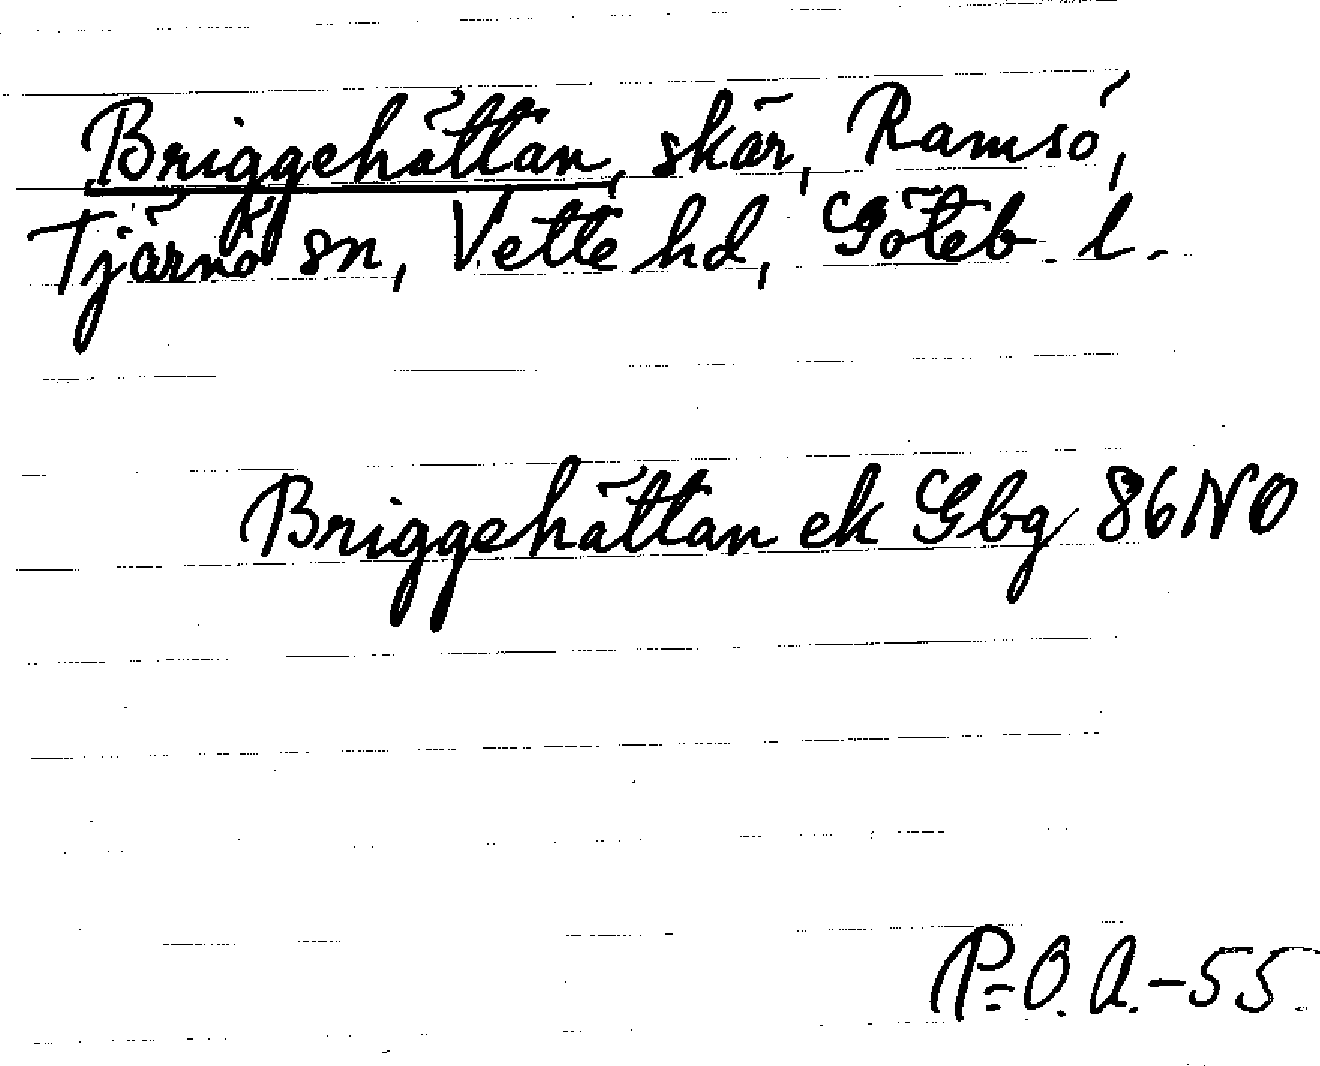 Briggehättan, skär, Ramsö,
Tjärnö sn, Vette hd, Göteb. l.
Briggehättan ek Gbg 86 NO
P=O.A.-55.